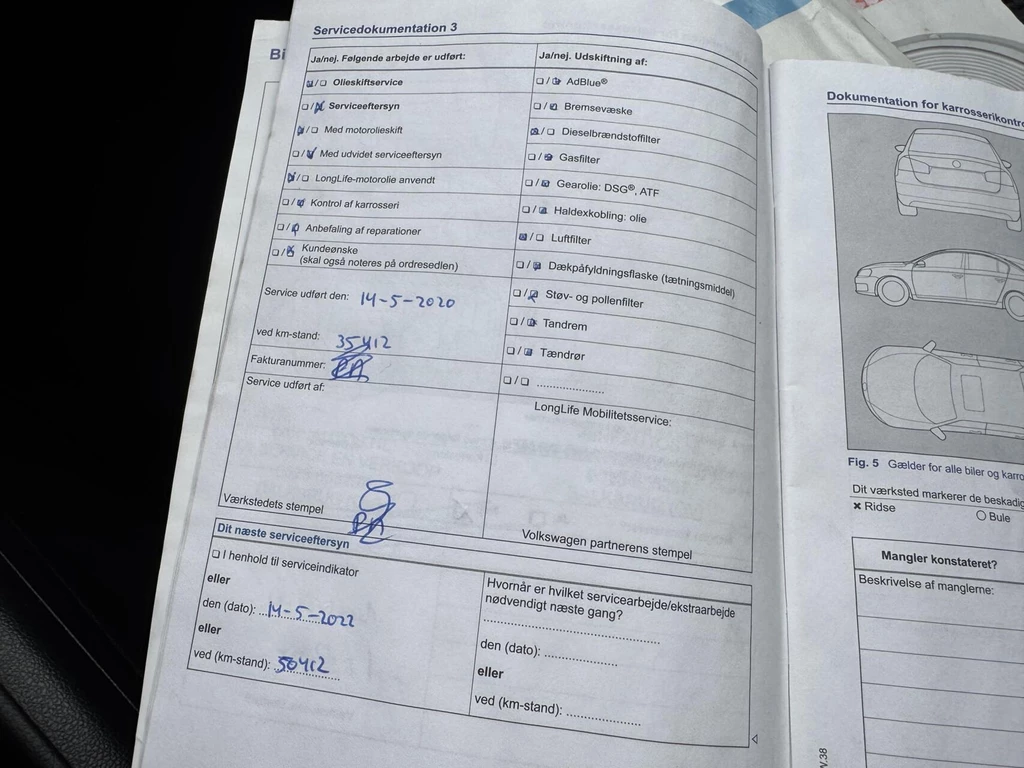 Bi
Servicedokumentation 3
Ja/nej. Følgende arbejde er udført:
Olieskiftservice
Serviceeftersyn
Med motorolieskift
Med udvidet serviceeftersyn
LongLife-motorolie anvendt
Kontrol af karrosseri
Anbefaling af reparationer
Kundeønske
(skal også noteres på ordresedlen)
Service udført den: 14-5-2020
ved km-stand: 35412
Fakturanummer:
Service udført af:
Værkstedets stempel
Ja/nej. Udskiftning af:
AdBlue®
Bremsevæske
Dieselbrændstoffilter
Gasfilter
Gearolie: DSG®, ATF
Haldexkobling: olie
Luftfilter
Dækpåfyldningsflaske (tætningsmiddel)
Støv- og pollenfilter
Tandrem
Tændrør
....................
LongLife Mobilitetsservice:
Volkswagen partnerens stempel
Dit næste serviceeftersyn
I henhold til serviceindikator
eller
den (dato): 14-5-2022
eller
ved (km-stand): 50412
Hvornår er hvilket servicearbejde/ekstraarbejde
nødvendigt næste gang?
den (dato): ....................
eller
ved (km-stand): ....................
Dokumentation for karrosserikontro
Fig. 5 Gælder for alle biler og karro
Dit værksted markerer de beskadig
× Ridse
Bule
Mangler konstateret?
Beskrivelse af manglerne: